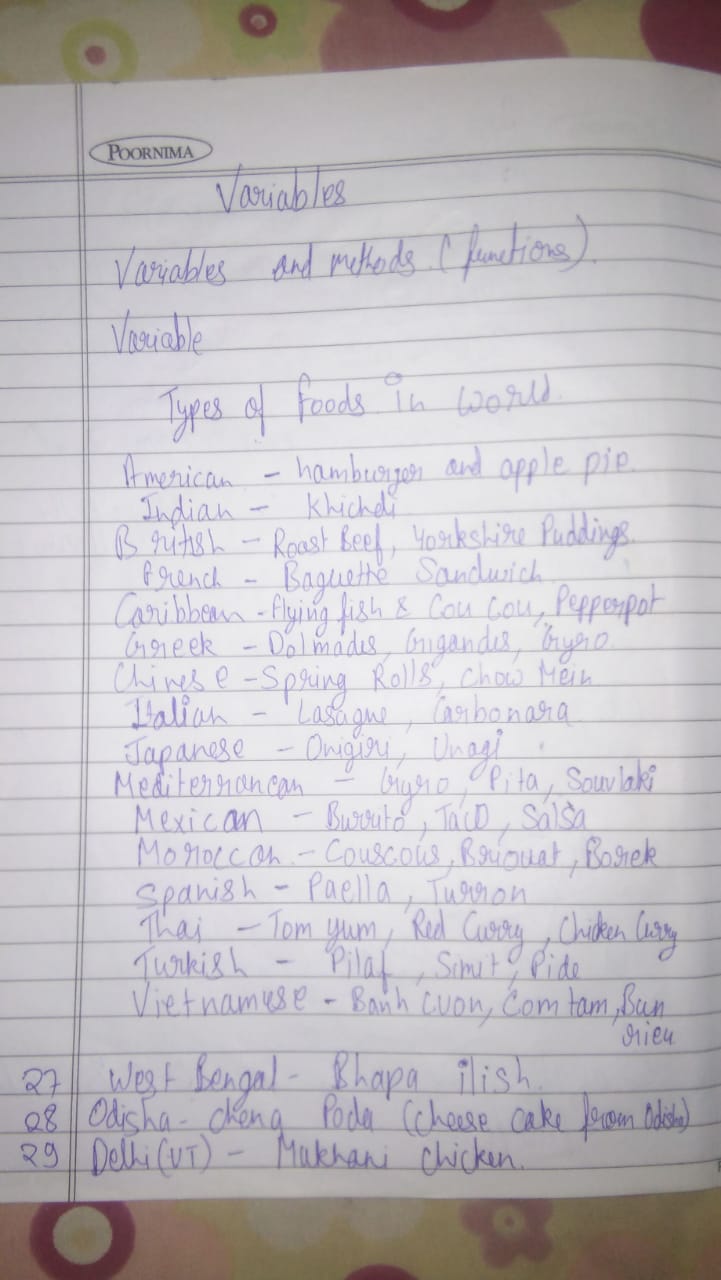 POORNIMA
Variables
Variables and methods (functions).
Variable
Types of foods in world.
American - hamburger and apple pie.
Indian - Khichdi
British - Roast Beef, Yorkshire Puddings.
French - Baguette Sandwich
Caribbean - flying fish & Cou Cou, Pepperpot
Greek - Dolmades, Gigandes, Gyro.
Chinese - Spring Rolls, Chow Mein
Italian - Lasagne, Carbonara
Japanese - Onigiri, Unagi
Mediterranean - Gyro, Pita, Souvlaki
Mexican - Burrito, Taco, Salsa
Moroccan - Couscous, Briouat, Borek
Spanish - Paella, Turron
Thai - Tom yum, Red Curry, Chicken Curry
Turkish - Pilaf, Simit, Pide
Vietnamese - Banh cuon, Com tam, Bun
rieu
27 West Bengal - Bhapa ilish.
28 Odisha - cheng Poda (Cheese cake from Odisha)
29 Delhi (UT) - Makhani chicken.